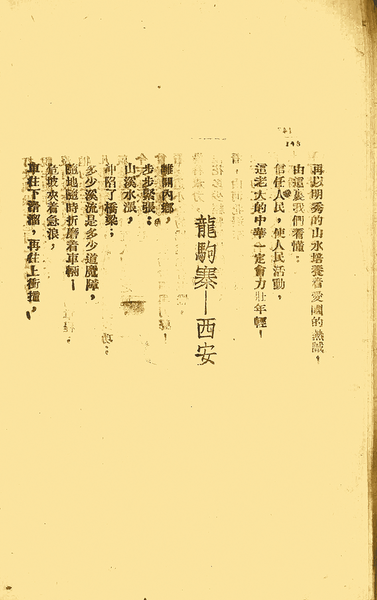 148
再以明秀的山水培養着愛國的熱誠,
由這裏我們看懂:
信任人民,使人民活動,
這老大的中華一定會力壯年輕!
龍駒寨—西安
離開內鄉,
步步緊張;
山溪水漲,
冲陷了橋梁;
多少溪流是多少道魔障,
隨地隨時折磨着車輛—
坡夾着急浪,
車往下滑溜,再往上衝撞,